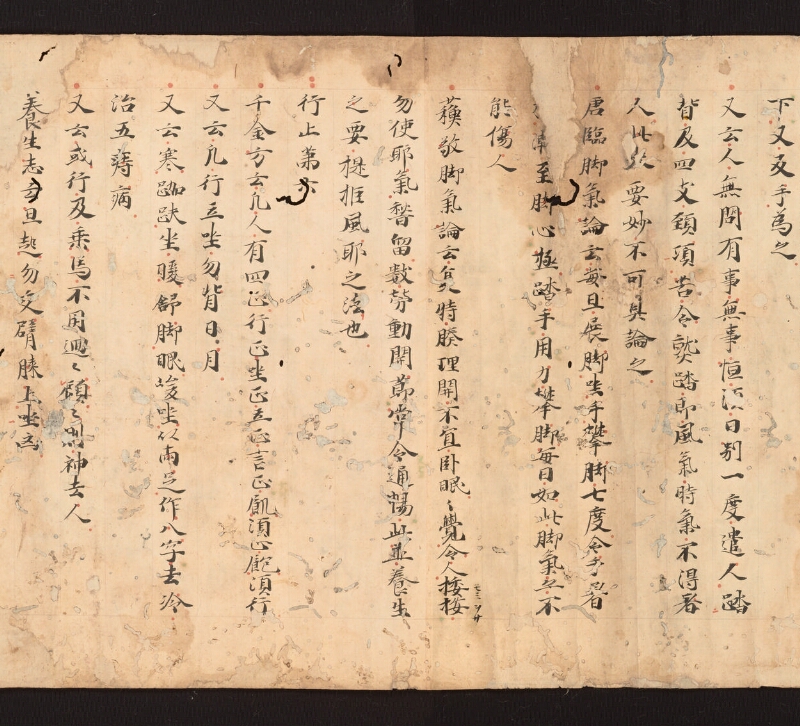 下又反手為之
又云人無問有事無事恒須日別一度遣人踏
背及四支頚項苦令熟踏即風氣時氣不得着
人此大要妙不可具論之
唐臨脚氣論云每旦展脚坐手攀脚七度令手着
至脚心極踏手用力攀脚每日如此脚氣無不
能傷人
蘓敬脚氣論云夏時腠理開不宜卧眠〻覺令人揉按
勿使耶氣稽留數勞動關節常令通暢此並養生
之要提拒風耶之法也
行止第六
千金方云凡人有四正行正坐正立正言正飢須正飽須行
又云凡行立坐勿背日月
又云寒跏趺坐暖舒脚眠峻坐以兩足作八字去冷
治五痔病
又云或行及乗馬不用迴〻顧〻則神去人
養生志云旦起勿交臂膝上坐凶